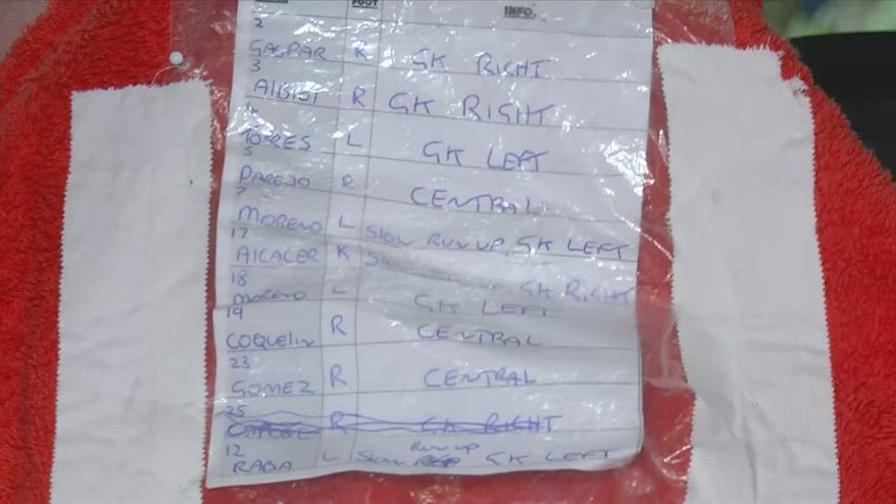 FOOT INFO.
2
GASPAR R GK RIGHT
3
AlBIOT R GK RIGHT
4
TORRES L GK LEFT
5
PAREJO R CENTRAL
7
MORENO L Slow RUN UP, GK LEFT
17
AlCACER R GK RIGHT
18
MORENO L GK LEFT
19
COQUElin R CENTRAL
23
GOMEZ R CENTRAL
25
R GK RIGHT
12
RABA L Slow Run up GK LEFT